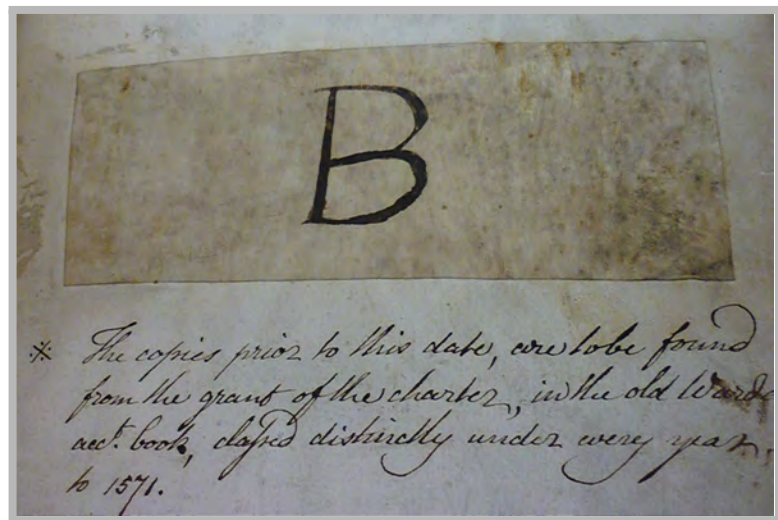 B
※ The copies prior to this date, are to be found
from the grant of the charter, in the old Wardⁿˢ
acct. book, classed distinctly under every year,
to 1571.